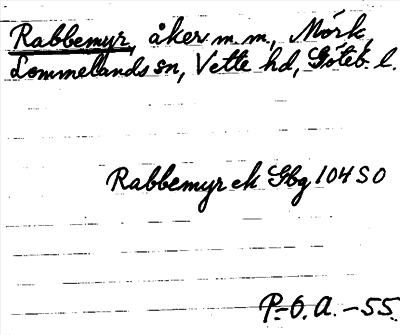 Rabbemyr, åker m. m., Mörk,
Lommelands sn, Vette hd, Göteb. l.
Rabbemyr ek Gbg 104 S O
P-O. A. -55.